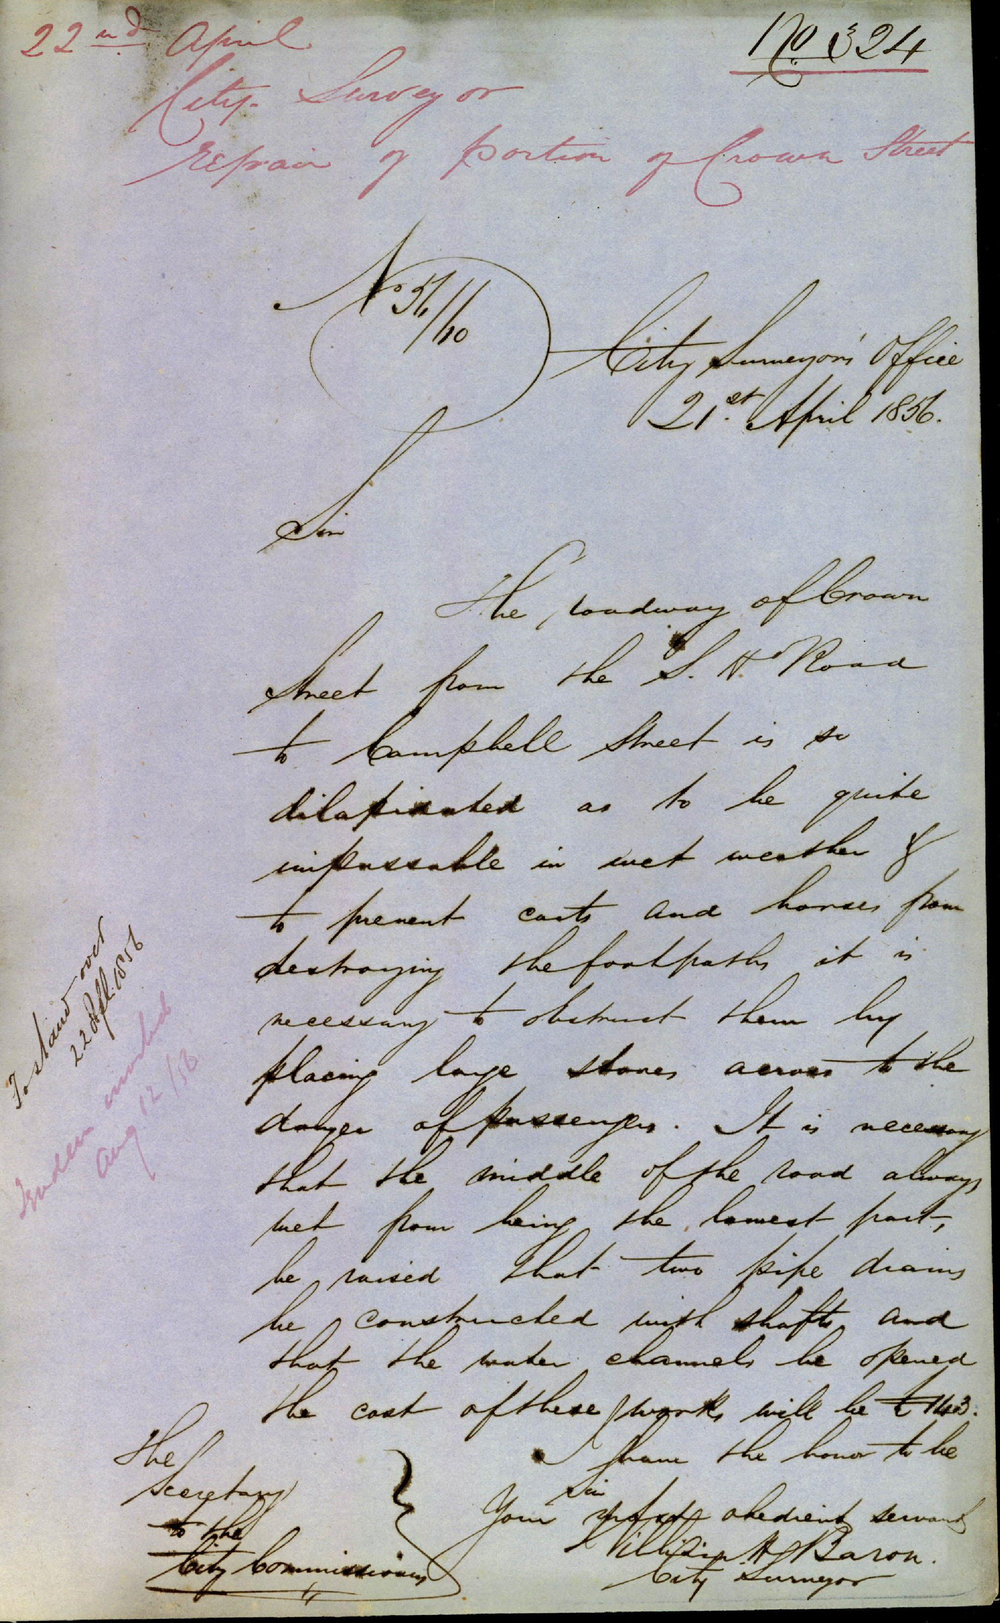 22nd April
No. 324
City Surveyor
Repair of portion of Crown Street
No 56/110
City Surveyor's Office
21st. April 1856.
Sir
The roadway of Crown
Street from the S. H. Road
to Campbell Street is so
dilapidated as to be quite
impassable in wet weather &
to prevent carts and horses from
destroying the footpaths it is
necessary to obstruct them by
placing large stones across to the
danger of passengers. It is necessary
that the middle of the road always
wet from being the lowest part,
be raised that two pipe drains
be constructed with shafts and
that the water channels be opened
the cost of these works will be £143.
I have the honor to be
Sir
Your most obedient servant
William H Baron.
City Surveyor
The
Secretary
to the
City Commissioners
To stand over
22 Apl. 1856
Aug 12/56